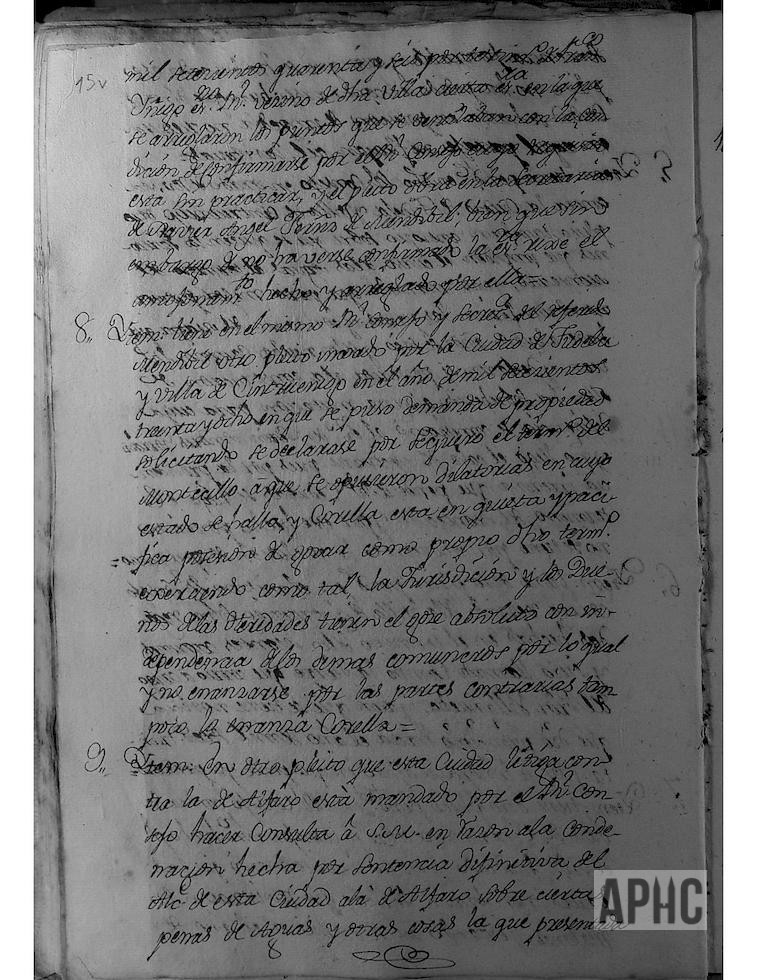 15v
mil setecientos quarenta y seis por testim.º de Fran.co
Yñigo es.no R.l vecino de dha villa
se arreglaron los puntos que se ventilaban con la con
dición de confirmarse por el R.l Consejo cuya
esta sin practicar, y el pleito obra en la Secretaria
de Navarra Angel Ferns de Mendibil; bien que sin
embargo de no haverse confirmado la es.ra rixe el
amojonam.to hecho y arreglado por ella =
8,, Ytem. tiene en el mismo R.l consejo y Secret.a del referido
Mendibil otro pleito movido por la Ciudad de Tudela
y Villa de Cintruenigo en el año de mil setecientos
treinta y ocho en que se puso demanda de propiedad
solicitando se declarase por seguiero el term.no del
Montecillo a que se opusieron dilatorias en cuyo
estado se halla, y Corella esta en quieta y paci-
fica posesion de gozar como propio dho term.o
exerciendo como tal la Jurisdicion y los Due-
ños de las Oteridades tienen el goze absoluto con in-
dependencia de los demas comuneros por lo qual
y no enanzarse por las partes contrarias tam
poco la enanza Corella =
9,, Ytem. En otro pleito que esta Ciudad litiga con
tra la de Alfaro está mandado por el R.l Con-
sejo hacer Consulta â S.M. en razon a la conde-
nacion hecha por Sentencia difinitiva del
Alc.e de esta Ciudad a la de Alfaro sobre ciertas
penas de Aguas y otras cosas la que presentada
APHC